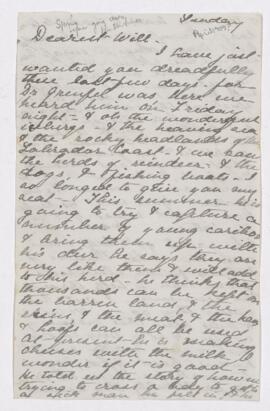 Sunday
Dearest Will -
I have just
wanted you dreadfully
these last two days - for
Dr Grenfell was here we
heard him on Friday
night - & oh the wonderful
icebergs - & the heaving sea
& the rocky headlands of the
Labrador Coast & we saw
the herds of reindeer & the
dogs, & fishing boats - we
so longed to give you my
seat - This summer he is
going to try & capture a
number of young caribou
& bring them up with
his deer he says they are
very like them & will add
to his herd - he thinks that
thousands can be kept on
the barren land & the
skins, & the meat & the horns
& hoofs can all be used
at present he is making
cheeses with the milk I
wonder if it is good -
He told us the story of how in
trying to cross a bay to
a sick man he fell in